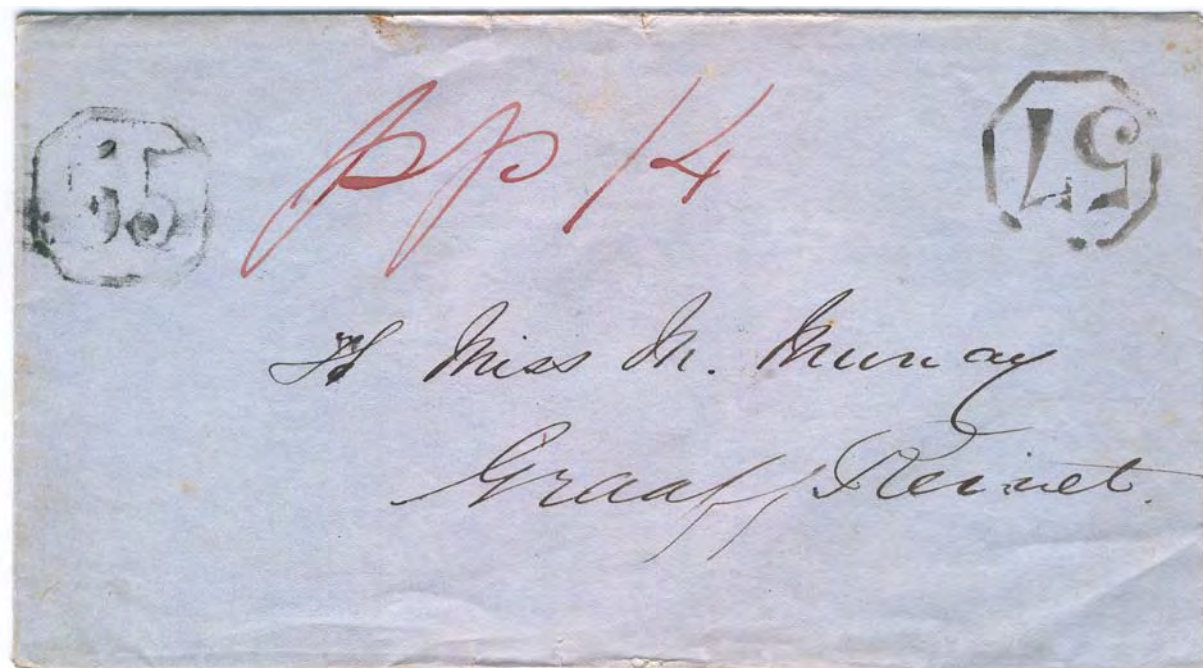 65
pp /4
57
Miss M. Murray
Graaff Reinet.